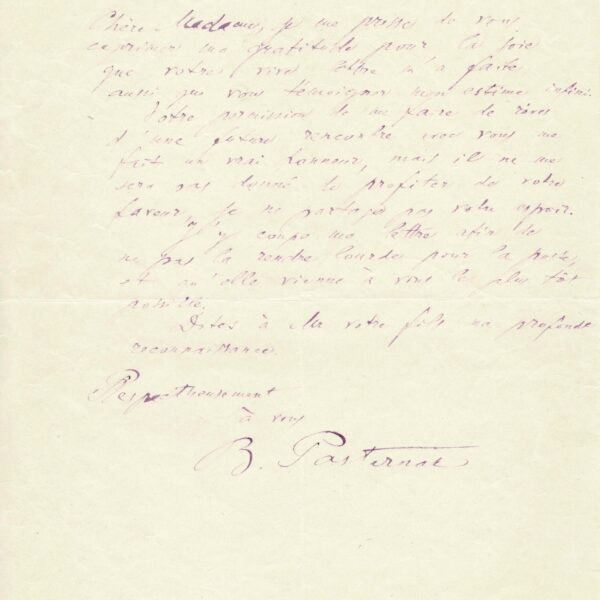 Chère Madame, je me presse de vous
exprimer ma gratitude pour la joie
que votre vive lettre m'a faite
aussi que vous témoigner mon estime infini.
Votre permission de me faire de rêves
d'une future rencontre avec vous me
fait un vrai honneur, mais il ne me
sera pas donné de profiter de votre
faveur, je ne partage pas votre espoir.
J'y coupe ma lettre afin de
ne pas la rendre lourde pour la poste,
et qu'elle vienne à vous le plus tôt
possible.
Dites à Mr votre fils ma profonde
reconnaissance.
Respectueusement
à vous
B. Pasternak